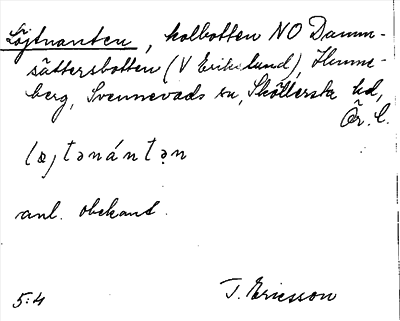 Löjtnanten, kolbotten NO Damm-
sättersbotten (V Erikslund), Hemme-
berg, Svennevads sn, Sköllersta hd,
Ör. l.
l(œ)tənántən
anl. obekant.
5:4 T. Ericsson